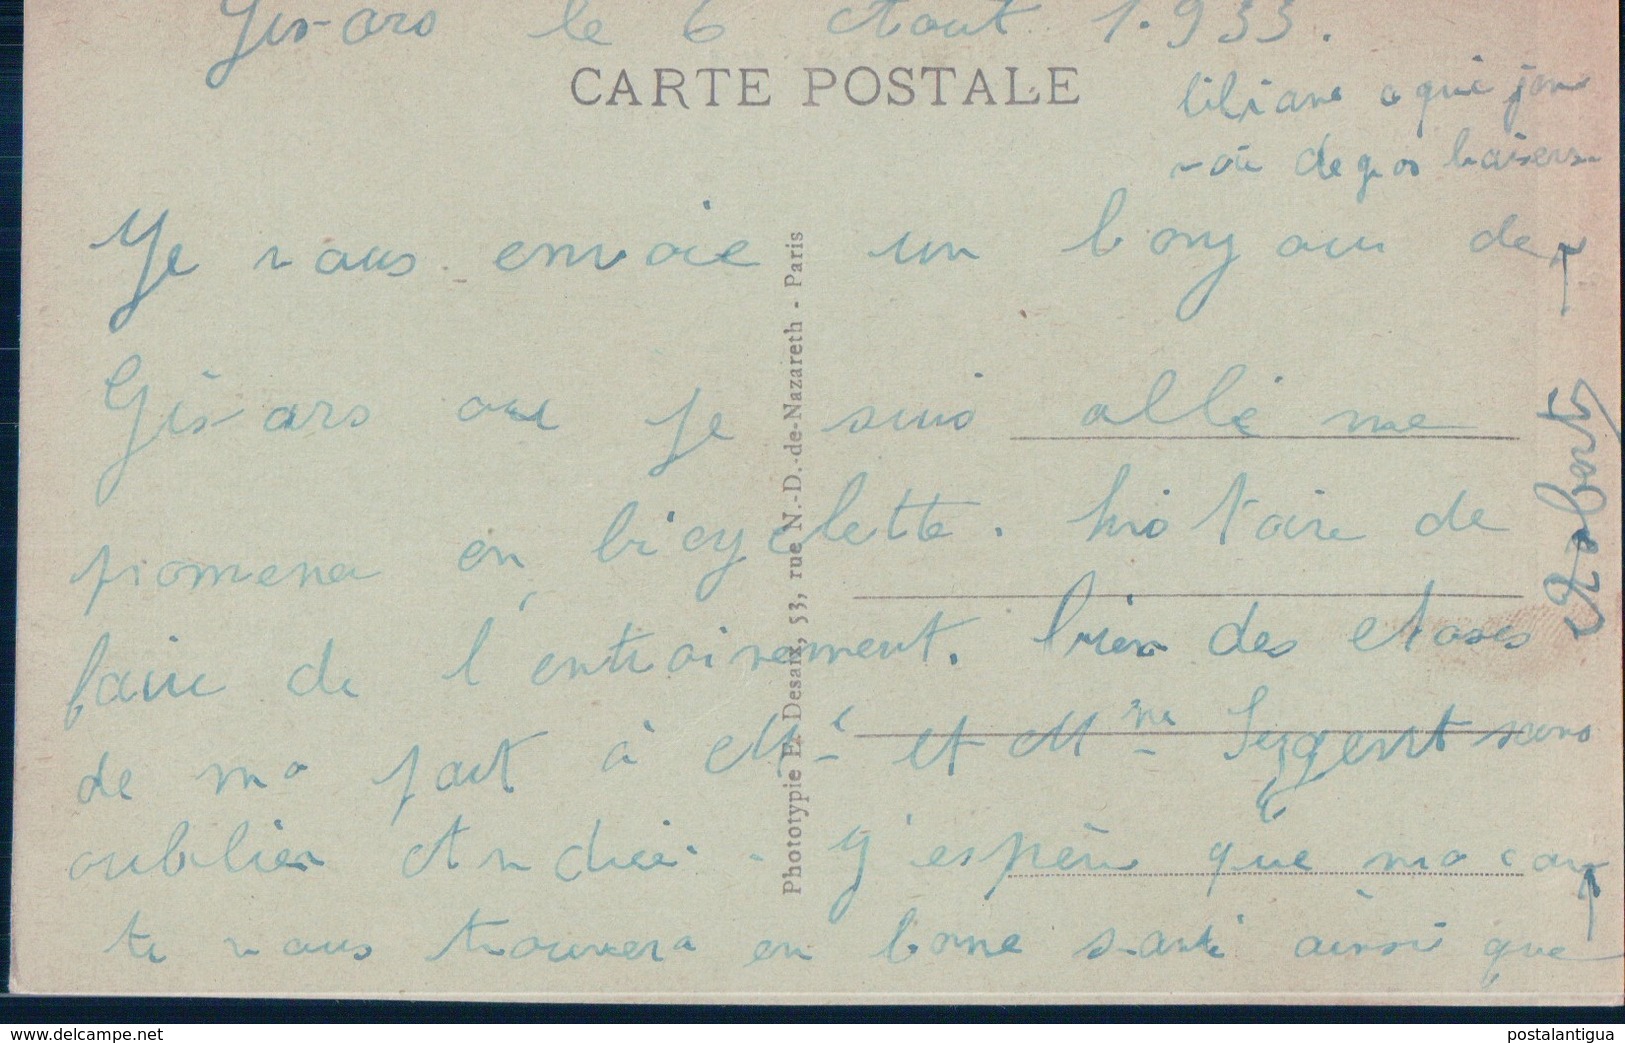 Gisors le 6 Aout 1.933.
CARTE POSTALE
liliane a qui j'en
voie de gros baisers
Je vous envoie un bonjour de
Gisors ou je suis allé me
promener en bicyclette. histoire de
faire de l'entrainement. bien des choses
de ma part à Mr et Mme Sergent sans
oublier Andrée. J'espère que ma car
te vous trouvera en bonne santé ainsi que
Robert
Phototypie E. Desaix, 53, rue N.-D.-de-Nazareth - Paris
www.delcampe.net
postalantigua